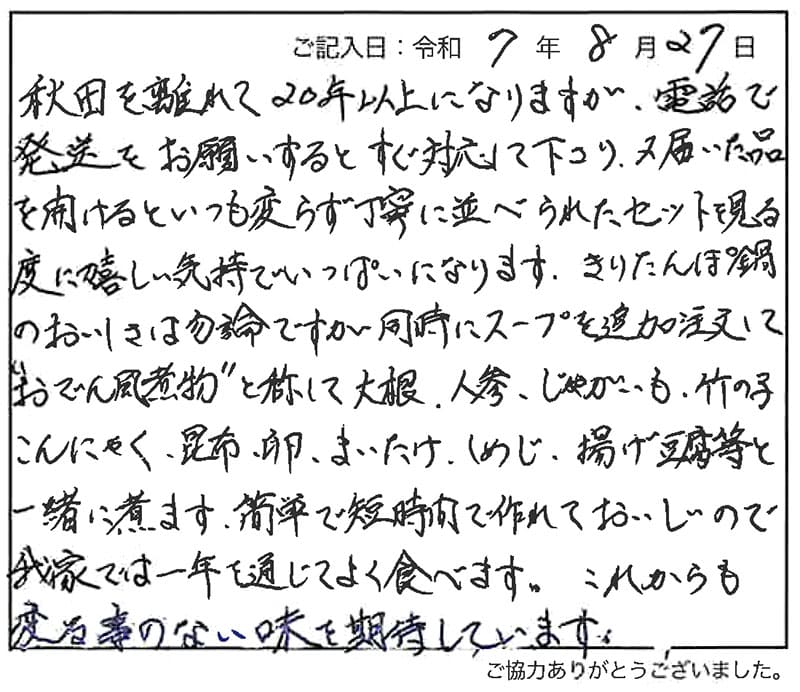 ご記入日：令和 7 年 8 月 27 日
秋田を離れて20年以上になりますが、電話で
発送をお願いするとすぐ対応して下さり、又届いた品
を開けるといつも変らず丁寧に並べられたセットを見る
度に嬉しい気持でいっぱいになります。きりたんぽ鍋
のおいしさは勿論ですが同時にスープを追加注文して
"おでん風煮物"と称して大根、人参、じゃがいも、竹の子
こんにゃく、昆布、卵、まいたけ、しめじ、揚げ豆腐等と
一緒に煮ます。簡単で短時間で作れておいしいので
我家では一年を通じてよく食べます。これからも
変る事のない味を期待しています。
ご協力ありがとうございました。